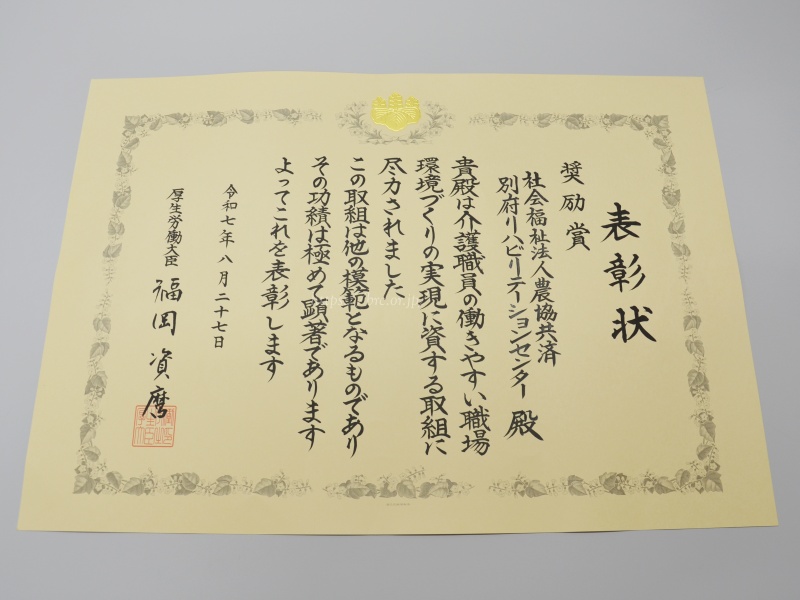 表彰状
奨励賞
社会福祉法人農協共済
別府リハビリテーションセンター 殿
貴殿は介護職員の働きやすい職場
環境づくりの実現に資する取組に
尽力されました
この取組は他の模範となるものであり
その功績は極めて顕著であります
よってこれを表彰します
令和七年八月二十七日
厚生労働大臣 福岡資麿